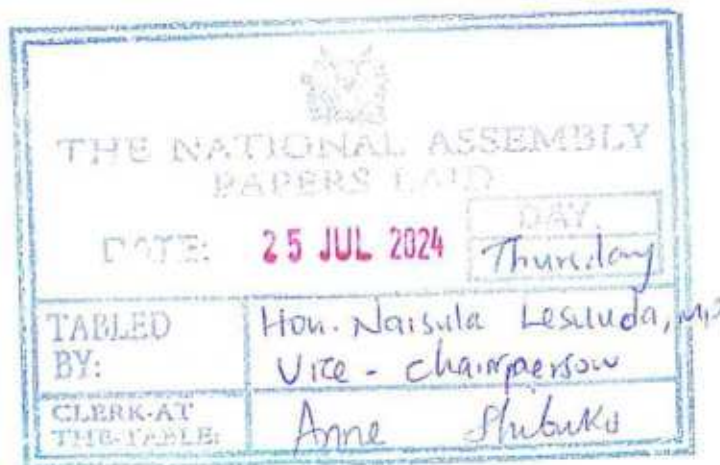 THE NATIONAL ASSEMBLY
PAPERS LAID
DATE: 25 JUL 2024 DAY.
Thursday
TABLED BY: Hon. Naisula Lesuuda, MP
Vice - Chairperson
CLERK-AT THE-TABLE: Anne Shibuko